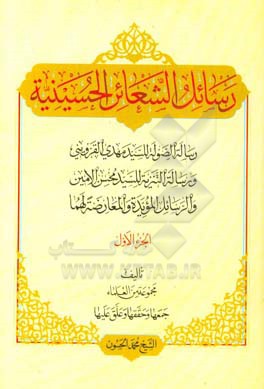 رَسَائِلُ الشَّعَائِرِ الحُسَيْنِيَّةِ
رسالة الصولة للسيد مهدي القزويني
ورسالة التنزيه للسيد محسن الأمين
والرسائل المؤيدة والمعارضة لهما
الجزء الأول
تأليف
مجموعة من العلماء
جمعها وحققها وعلق عليها
الشيخ محمد الحسون